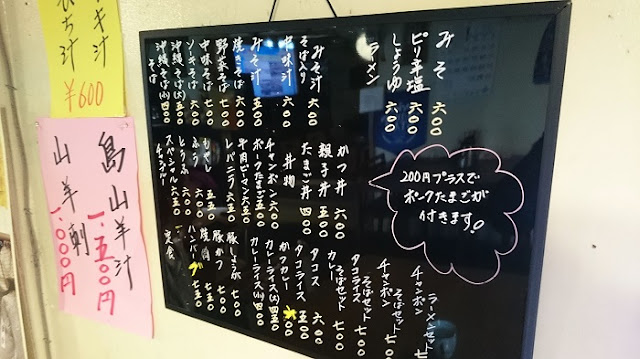 みそ 六〇〇
ピリ辛塩 六〇〇
しょうゆ 六〇〇
ラーメン
みそ汁
そば入り 六〇〇
中味汁 六〇〇
みそ汁 五〇〇
焼きそば 六〇〇
野菜そば 七〇〇
中味そば 七〇〇
ソーキそば 六〇〇
沖縄そば(大) 五〇〇
沖縄そば(小) 四〇〇
そば
200円プラスで
ポークたまごが
付きます!
かつ丼 六〇〇
親子丼 五〇〇
たまご丼
丼物
チャンポン 六〇〇
ポークたまご 五〇〇
牛肉ピーマン 六五〇
レバニラ 六五〇
もやし
とうふ 六五〇
スペシャル
チャンプルー
ラーメンセット
チャンポン
そばセット 七〇〇
チャンポン
そばセット 七〇〇
タコライス
そばセット 七〇〇
カレー
タコス 六〇〇
タコライス 五〇〇
かつカレー
カレーライス(大) 四五〇
カレーライス(小) 四〇〇
豚しょうが 七〇〇
豚かつ 七五〇
焼肉 七五〇
ハンバーグ 七五〇
定食
汁
¥600
島山羊汁
一、五〇〇円
山羊刺
一、〇〇〇円